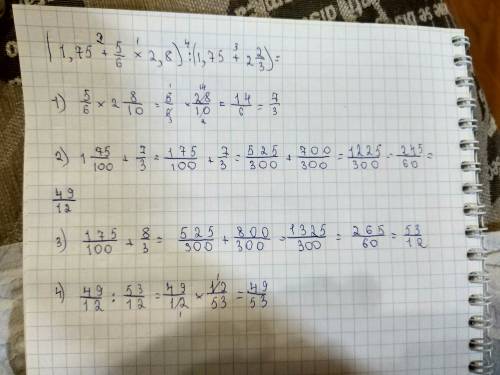 (1,75 + 5/6 × 2,8) : (1,75 + 2 2/3) =
1) 5/6 × 2 8/10 = 5/6 × 28/10 = 14/6 = 7/3
2) 1 75/100 + 7/3 = 175/100 + 7/3 = 525/300 + 700/300 = 1225/300 = 245/60 =
49/12
3) 175/100 + 8/3 = 525/300 + 800/300 = 1325/300 = 265/60 = 53/12
4) 49/12 : 53/12 = 49/12 × 12/53 = 49/53